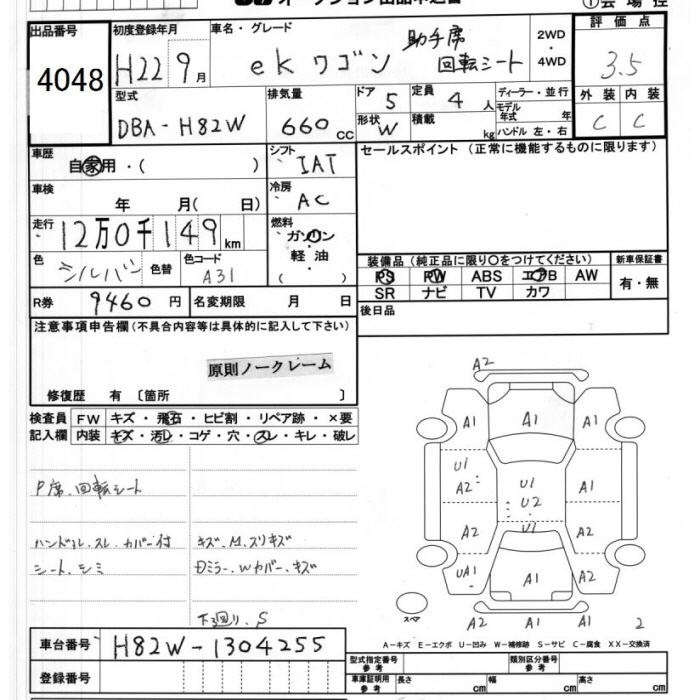 出品番号
4048
初度登録年月
H22 9月
車名・グレード
ekワゴン 助手席
回転シート
2WD
4WD
評価点
3.5
型式
DBA-H82W
排気量
660cc
ドア
5
定員
4人
形状
W
積載
kg
ディーラー・並行
モデル年式 年
ハンドル 左・右
外装 内装
C C
車歴
自家用・( )
シフト
IAT
セールスポイント (正常に機能するものに限ります)
車検
年 月( 日)
冷房
AC
走行
12万0千149km
燃料
ガソリン
軽油
( )
色
シルバー
色替
色コード
A31
装備品(純正品に限り○をつけてください)
新車保証書
PS PW ABS エアB AW
SR ナビ TV カワ
有・無
R券 9460円
名変期限 月 日
後日品
注意事項申告欄(不具合内容等は具体的に記入して下さい)
原則ノークレーム
修復歴 有 〔箇所 〕
検査員
記入欄
FW キズ・飛石・ヒビ割・リペア跡・×要
内装 キズ・汚レ・コゲ・穴・スレ・キレ・破レ
P席、回転シート
ハンドル、スレ、カバー付
シート、シミ
キズ、M、スリキズ
Dミラー、Wカバー、キズ
下回り、S
A2
A1 A1 A1
U1
A2
U1
U2
A1
A2 U1 A2
UA1 A1 A2
スペア
A2 A1 A1 2
A-キズ E-エクボ U-凹み W-補修跡 S-サビ C-腐食 XX-交換済
車台番号 H82W-1304255
登録番号
型式指定番号
参考
類別区分番号
参考
車庫証明用
参考
長さ cm
幅 cm
高さ cm